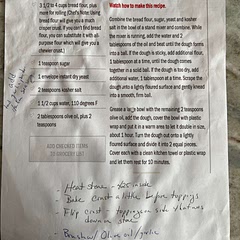 3 1/2 to 4 cups bread flour, plus
more for rolling (Chef's Note: Using
bread flour will give you a much
crisper crust. If you can't find bread
flour, you can substitute it with all-
purpose flour which will give you a
chewier crust.)
1 teaspoon sugar
1 envelope instant dry yeast
2 teaspoons kosher salt
1 1/2 cups water, 110 degrees F
2 tablespoons olive oil, plus 2
teaspoons
ADD CHECKED ITEMS
TO GROCERY LIST
Watch how to make this recipe.
Combine the bread flour, sugar, yeast and kosher
salt in the bowl of a stand mixer and combine. While
the mixer is running, add the water and 2
tablespoons of the oil and beat until the dough forms
into a ball. If the dough is sticky, add additional flour,
1 tablespoon at a time, until the dough comes
together in a solid ball. If the dough is too dry, add
additional water, 1 tablespoon at a time. Scrape the
dough onto a lightly floured surface and gently knead
into a smooth, firm ball.
Grease a large bowl with the remaining 2 teaspoons
olive oil, add the dough, cover the bowl with plastic
wrap and put it in a warm area to let it double in size,
about 1 hour. Turn the dough out onto a lightly
floured surface and divide it into 2 equal pieces.
Cover each with a clean kitchen towel or plastic wrap
and let them rest for 10 minutes.
- Heat stone -
- Bake crust a little before toppings
- Flip crust - toppings on side
down on stone
- Brush w/ Olive oil/garlic